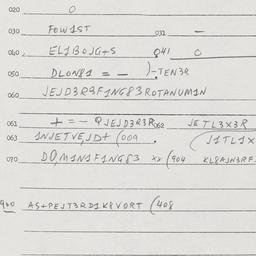 020 0
030 FOW1ST 031 -
040 EL1BOJG+S 041 0
050 DLON81 = - )-TEN3R
060 JEJD3R9F1NG83ROTANUM1N
061 + = - QJEJD3R3R 062 JETL3X3R
063 1NJETVEJD+ (009 J1TL1X
070 DOM1N1F1NG83 xx (904 KL8AJN3RF
900 AS+PEJT3RD1K8VORT (408